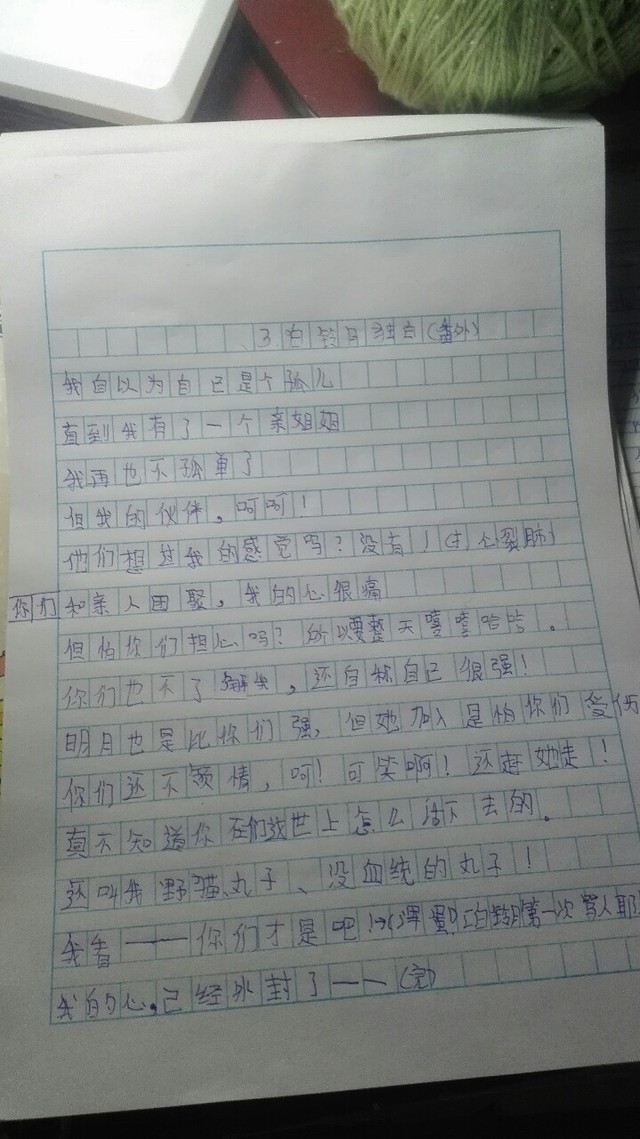 3白铃月独白(番外)
我自以为自已是个孤儿
直到我有了一个亲姐姐
我再也不孤单了
但我的伙伴,呵呵!
他们想过我的感觉吗?没有!(心裂肺)
你们和亲人团聚,我的心很痛
但怕你们担心吗?所以要整天嘻嘻哈哈。
你们也不了解我,还自称自己很强!
明月也是比你们强,但她加入是怕你们受伤
你们还不领情,呵!可笑啊!还赶她走!
真不知道你在们这世上怎么活下去的。
还叫我野猫丸子、没血统的丸子!
我看——你们才是吧!第一次骂人耶
我的心,已经冰封了——(完)